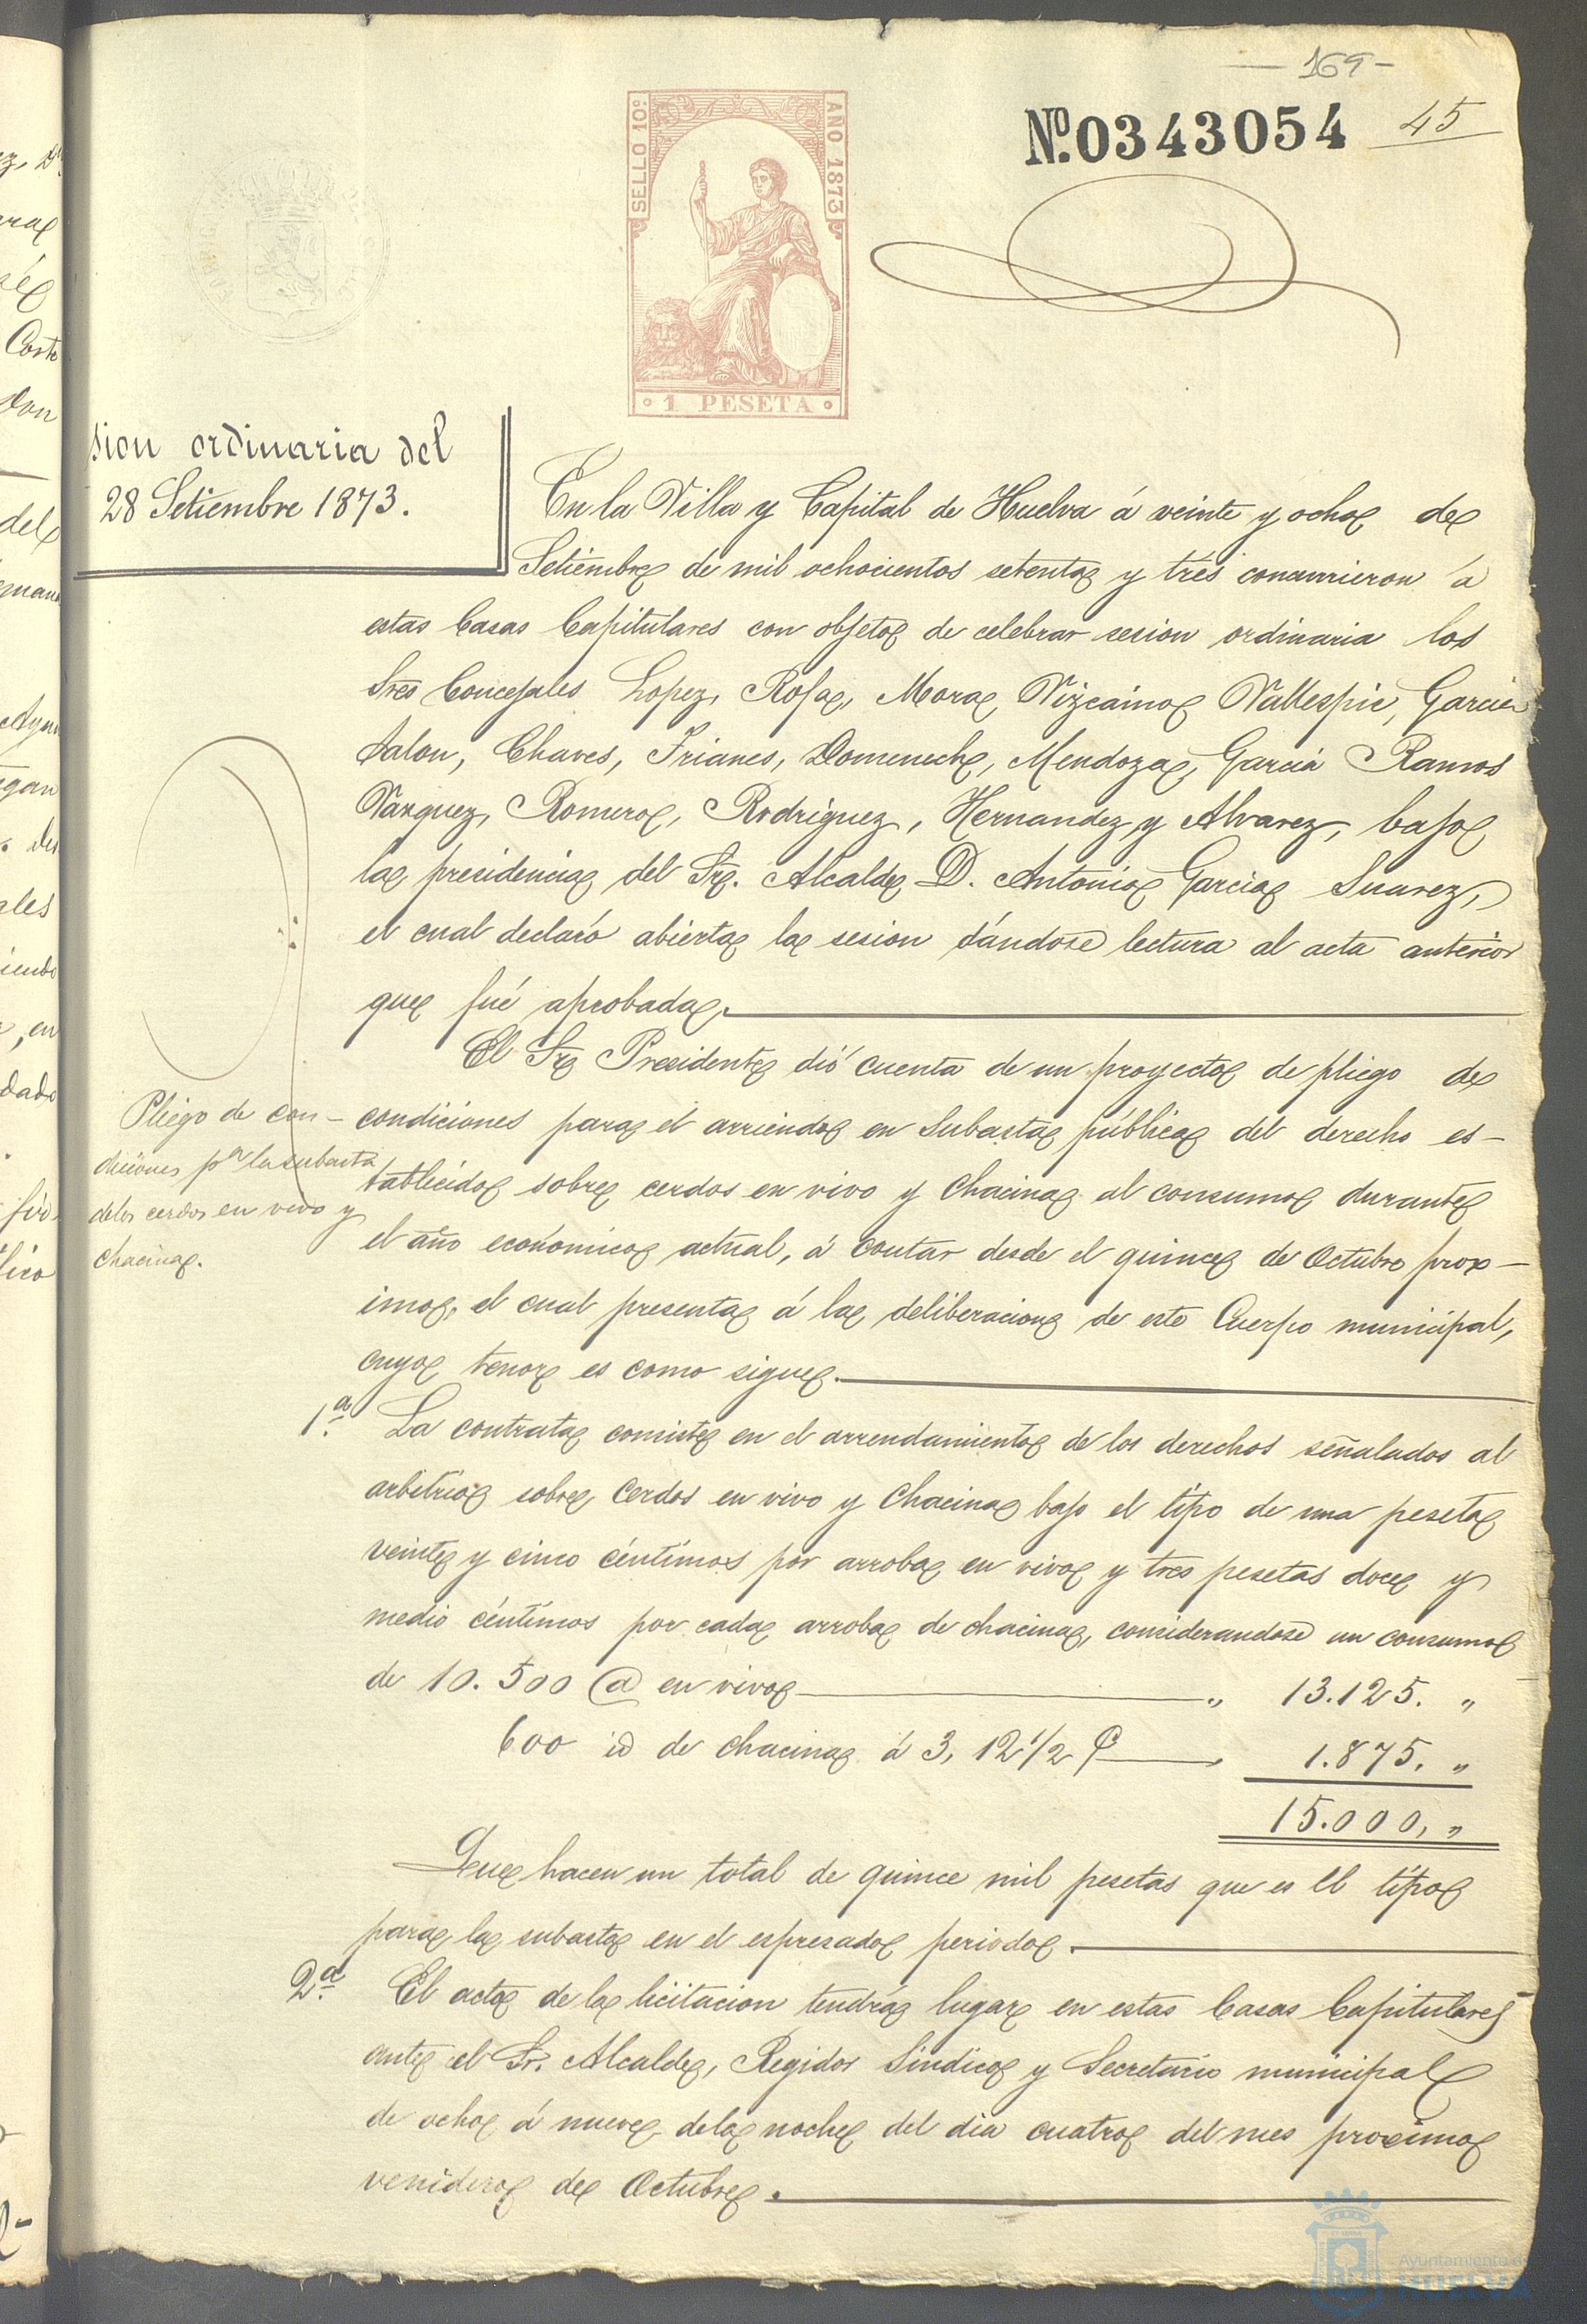 - 169 -
Nº. 0343054
45
SELLO 10º
AÑO 1873
1 PESETA
sion ordinaria del
28 Setiembre 1873.
En la Villa y Capital de Huelva á veinte y ocho de
Setiembre de mil ochocientos setenta y trés concurrieron á
estas Casas Capitulares con objeto de celebrar sesion ordinaria los
Sres Concejales Lopez, Rofa, Mora, Vizcaino, Vallespin, Garcia
Jalon, Chaves, Frianes, Domenech, Mendoza, Garcia Ramos
Vazquez, Romero, Rodriguez, Hernandez y Alvarez, bajo
la presidencia del Sr. Alcalde D. Antonio Garcia Suarez,
el cual declaró abierta la sesion dándose lectura al acta anterior
que fué aprobada.
El Sr Presidente dió cuenta de un proyecto de pliego de
Pliego de con-
diciones pª la subasta
de los cerdos en vivo y
chacina.
condiciones para el arriendo en subasta pública del derecho es-
tablecido sobre cerdos en vivo y chacina al consumo durante
el año económico actual, á contar desde el quince de Octubre prox-
imo, el cual presenta á la deliberacion de este Cuerpo municipal,
cuyo tenor es como sigue.
1ª. La contrata consiste en el arrendamiento de los derechos señalados al
arbitrio sobre Cerdos en vivo y Chacina bajo el tipo de una peseta
veinte y cinco céntimos por arroba en vivo y tres pesetas doce y
medio céntimos por cada arroba de chacina, considerandose un consumo
de 10.500 @ en vivo " 13.125. "
600 id de chacina á 3, 12 1/2 P 1.875. "
15.000, "
Que hacen un total de quince mil pesetas que es el tipo
para la subasta en el espresado periodo.
2ª. El acto de la licitacion tendrá lugar en estas Casas Capitulares
ante el Sr. Alcalde, Regidor Sindico y Secretario municipal
de ocho á nueve de la noche del dia cuatro del mes proximo
venidero de Octubre.
Ayuntamiento de
HUELVA